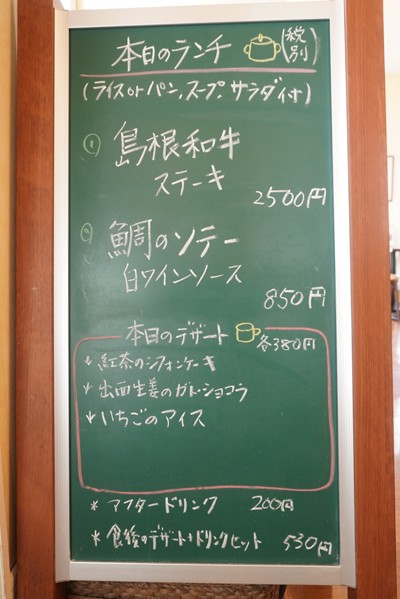 本日のランチ (税別)
(ライスorパン、スープ、サラダ付)
① 島根和牛
ステーキ
2500円
② 鯛のソテー
白ワインソース
850円
本日のデザート 各380円
* 紅茶のシフォンケーキ
* 出西生姜のガトーショコラ
* いちごのアイス
* アフタードリンク 200円
* 食後のデザート+ドリンクセット 530円